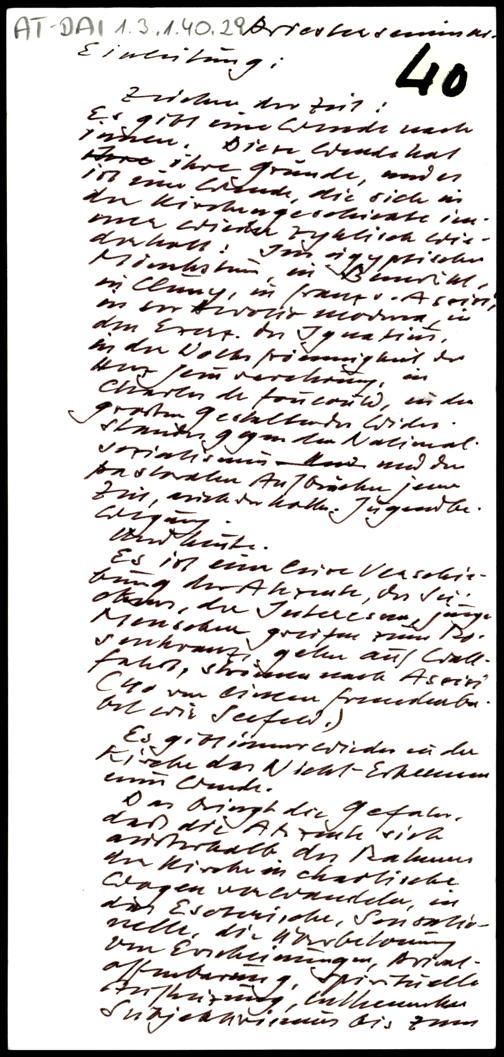 AT-DAI 1.3.1.40.29 Priesterseminar-
Einleitung:
40
Zeichen der Zeit:
Es gibt eine Wende nach
innen. Diese Wende hat
ihre Gründe, und es
ist eine Wende, die sich in
der Kirchengeschichte im-
mer wieder zyklisch wie-
derholt: Im ägyptischen
Mönchstum, in Benedikt,
in Cluny, in Franz v. Assisi,
in der Devotio moderna, in
den Exerz. des Ignatius,
in der Volksfrömmigkeit der
Herz Jesu verehrung, in
Charles de Foucauld, in den
großen Gestalten des Wider-
standes gegen den National-
sozialismus und den
pastoralen Aufbrüchen jener
Zeit, auch der kath. Jugendbe-
wegung.
Und heute.
Es ist eine leise Verschie-
bung der Akzente, des
der Interessen, junge
Menschen greifen zum Ro-
senkranz, gehen auf Wall-
fahrt, strömen nach Assisi
wie Seefeld.)
Es gibt immer wieder in der
Kirche das Nicht-Erkennen
einer Wende.
Das bringt die Gefahr,
daß die Akzente sich
ausserhalb des Rahmens
der Kirche in chaotische
Wogen verwandeln, in
das Esoterische, Sensatio-
nelle, die Überbetonung
von Erscheinungen, Privat-
offenbarung, spirituelle
Subjektivismus bis zum